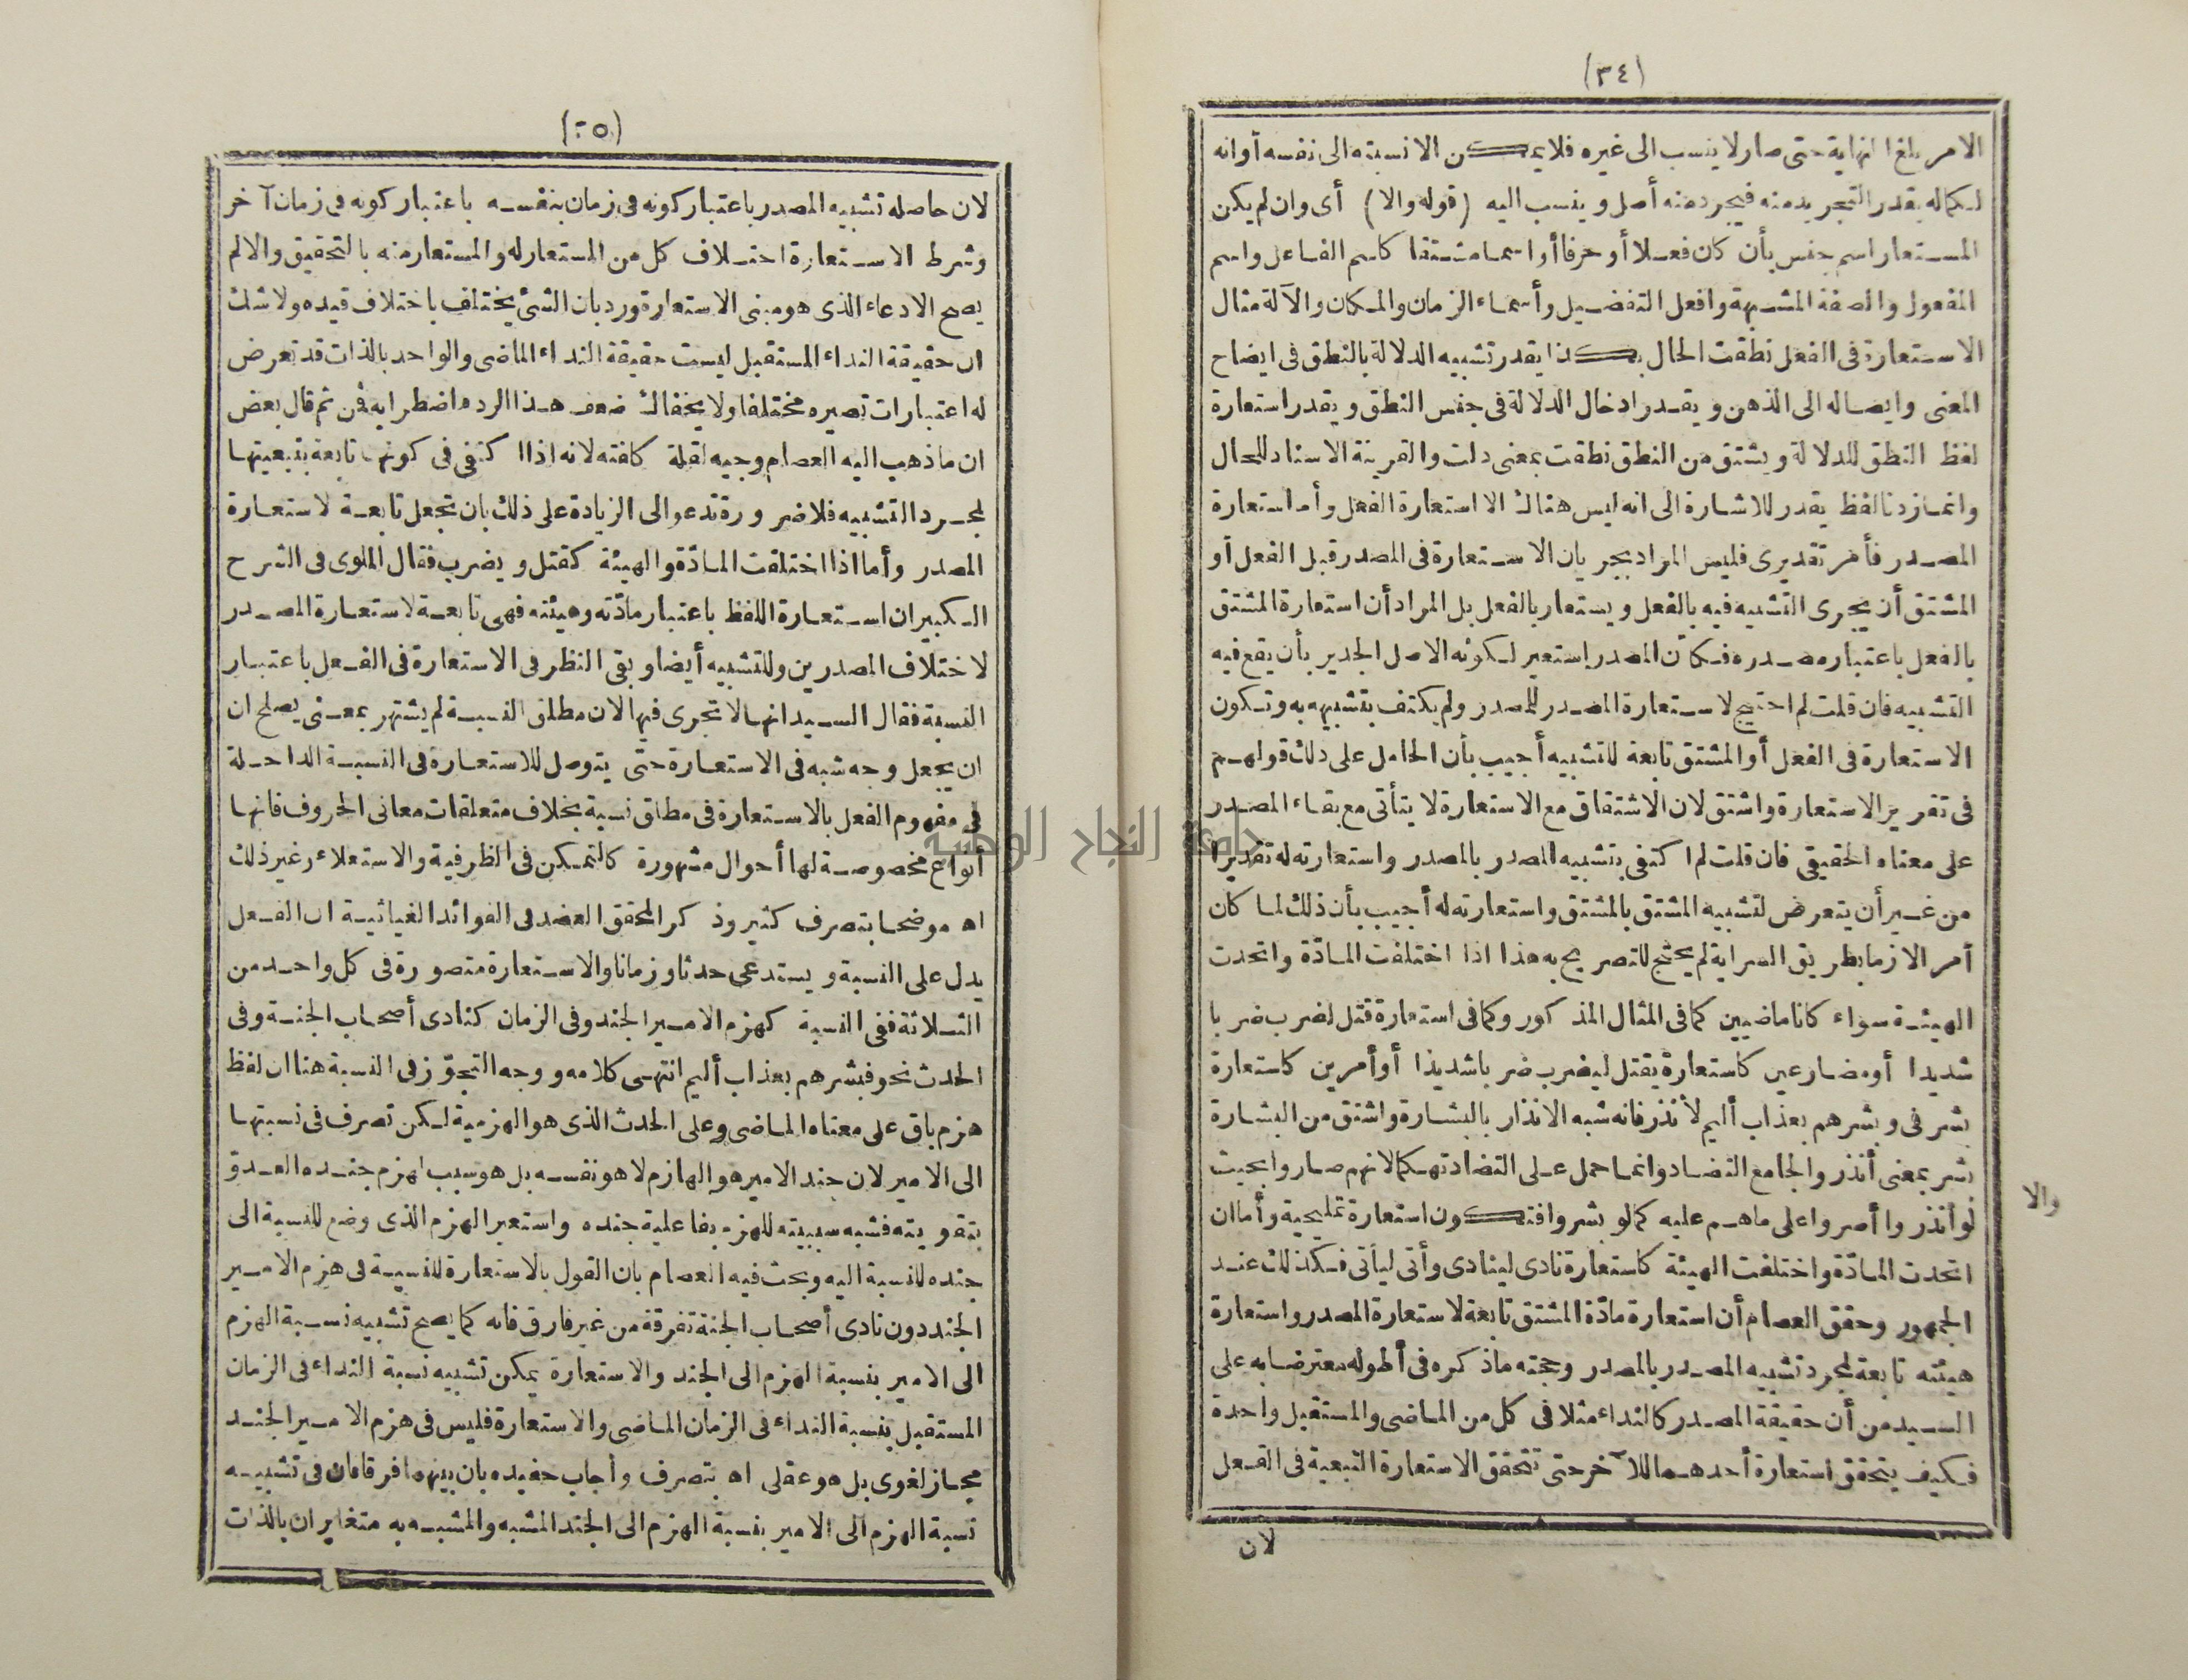 (٣٤)
الامر بلغ النهاية حتى صار لا ينسب الى غيره فلا يمكن الا نسبته الى نفسه أو انه
لكماله يقدر التجريد منه فيجرد منه أصل وينسب اليه (قوله والا) أى وان لم يكن
المستعار اسم جنس بأن كان فعلا أو حرفا أو اسما مشتقا كاسم الفاعل واسم
المفعول والصفة المشبهة وافعل التفضيل وأسماء الزمان والمكان والآلة مثال
الاستعارة فى الفعل نطقت الحال بكذا يقدر تشبيه الدلالة بالنطق فى ايضاح
المعنى وايصاله الى الذهن ويقدر ادخال الدلالة فى جنس النطق ويقدر استعارة
لفظ النطق للدلالة ويشتق من النطق نطقت بمعنى دلت والقرينة الاسناد للحال
وانما زدنا لفظ يقدر للاشارة الى انه ليس هناك الا استعارة الفعل وأما استعارة
المصدر فأمر تقديرى فليس المراد بجريان الاستعارة فى المصدر قبل الفعل أو
المشتق أن يجرى التشبيه فيه بالفعل ويستعار بالفعل بل المراد أن استعارة المشتق
بالفعل باعتبار مصدره فكأن المصدر استعير لكونه الاصل الجدير بأن يقع فيه
التشبيه فان قلت لم احتيج لاستعارة المصدر للمصدر ولم يكتف بتشبيهه به وتكون
الاستعارة فى الفعل أو المشتق تابعة للتشبيه أجيب بأن الحامل على ذلك قولهم
فى تقرير الاستعارة واشتق لان الاشتقاق مع الاستعارة لا يتأتى مع بقاء المصدر
على معناه الحقيقى فان قلت لم اكتفى بتشبيه المصدر بالمصدر واستعارته له تقديرا
من غير أن يتعرض لتشبيه المشتق بالمشتق واستعارته له أجيب بأن ذلك لما كان
أمرا لازما بطريق السراية لم يحتج للتصريح به هذا اذا اختلفت المادّة واتحدت
الهيئة سواء كانا ماضيين كما فى المثال المذكور وكما فى استعارة قتل لضرب ضربا
شديدا أو مضارعين كاستعارة يقتل ليضرب ضربا شديدا أو أمرين كاستعارة
بشر فى وبشرهم بعذاب أليم لأنذر فانه شبه الانذار بالبشارة واشتق من البشارة
بشر بمعنى أنذر والجامع التضاد وانما حمل على التضاد تهكما لانهم صاروا بحيث
لو أنذروا أصروا على ما هم عليه كما لو بشروا فتكون استعارة تمليحية وأما ان
اتحدت المادّة واختلفت الهيئة كاستعارة نادى لينادى وأتى ليأتى فكذلك عند
الجمهور وحقق العصام أن استعارة مادّة المشتق تابعة لاستعارة المصدر واستعارة
هيئته تابعة لمجرد تشبيه المصدر بالمصدر وحجته ماذكره فى أطوله معترضا به على
السيد من أن حقيقة المصدر كالنداء مثلا فى كل من الماضى والمستقبل واحدة
فكيف يتحقق استعارة أحدهما للآخر حتى تتحقق الاستعارة التبعية فى الفعل
لان
والا
(٣٥)
لان حاصله تشبيه المصدر باعتبار كونه فى زمان بنفسه باعتبار كونه فى زمان آخر
وشرط الاستعارة اختلاف كل من المستعار له والمستعار منه بالتحقيق والا لم
يصح الادعاء الذى هو مبنى الاستعارة ورد بان الشئ يختلف باختلاف قيده ولا شك
ان حقيقة النداء المستقبل ليست حقيقة النداء الماضى والواحد بالذات قد تعرض
له اعتبارات تصيره مختلفا ولا يخفاك ضعف هذا الرد واضطرابه فمن ثم قال بعض
ان ما ذهب اليه العصام وجيه لقلة كلفته لانه اذا اكتفى فى كونها تابعة بتبعيتها
لمجرد التشبيه فلا ضرورة تدعو الى الزيادة على ذلك بان تجعل تابعة لاستعارة
المصدر وأما اذا اختلفت المادّة والهيئة كقتل ويضرب فقال الملوى فى الشرح
الكبير ان استعارة اللفظ باعتبار مادّته وهيئته فهى تابعة لاستعارة المصدر
لاختلاف المصدرين وللتشبيه أيضا وبقى النظر فى الاستعارة فى الفعل باعتبار
النسبة فقال السيد انها لا تجرى فيها لان مطلق النسبة لم يشتهر بمعنى يصلح ان
ان يجعل وجه شبه فى الاستعارة حتى يتوصل للاستعارة فى النسبة الداخلة
فى مفهوم الفعل بالاستعارة فى مطلق نسبة بخلاف متعلقات معانى الحروف فانها
أنواع مخصوصة لها أحوال مشهورة كالتمكن فى الظرفية والاستعلاء وغير ذلك
اه موضحا بتصرف كثير وذكر المحقق العضد فى الفوائد الغياثية ان الفعل
يدل على النسبة ويستدعى حدثا وزمانا والاستعارة متصورة فى كل واحد من
الثلاثة ففى النسبة كهزم الامير الجند وفى الزمان كنادى أصحاب الجنة وفى
الحدث نحو فبشرهم بعذاب أليم انتهى كلامه ووجه التجوّز فى النسبة هنا ان لفظ
هزم باق على معناه الماضى وعلى الحدث الذى هو الهزمية لكن تصرف فى نسبتها
الى الامير لان جند الامير هو الهازم لا هو نفسه بل هو سبب لهزم جنده العدوّ
بتقويته فشبه سببيته للهزم بفاعلية جنده واستعير الهزم الذى وضع للنسبة الى
جنده للنسبة اليه وبحث فيه العصام بان القول بالاستعارة للنسبة فى هزم الامير
الجند دون نادى أصحاب الجنة تفرقة من غير فارق فانه كما يصح تشبيه نسبة الهزم
الى الامير بنسبة الهزم الى الجند والاستعارة يمكن تشبيه نسبة النداء فى الزمان
المستقبل بنسبة النداء فى الزمان الماضى والاستعارة فليس فى هزم الامير الجند
مجاز لغوى بل هو عقلى اه بتصرف وأجاب حفيده بان بينهما فرقا فان فى تشبيه
نسبة الهزم الى الامير بنسبة الهزم الى الجند المشبه والمشبه به متغايران بالذات
جامعة النجاح الوطنية